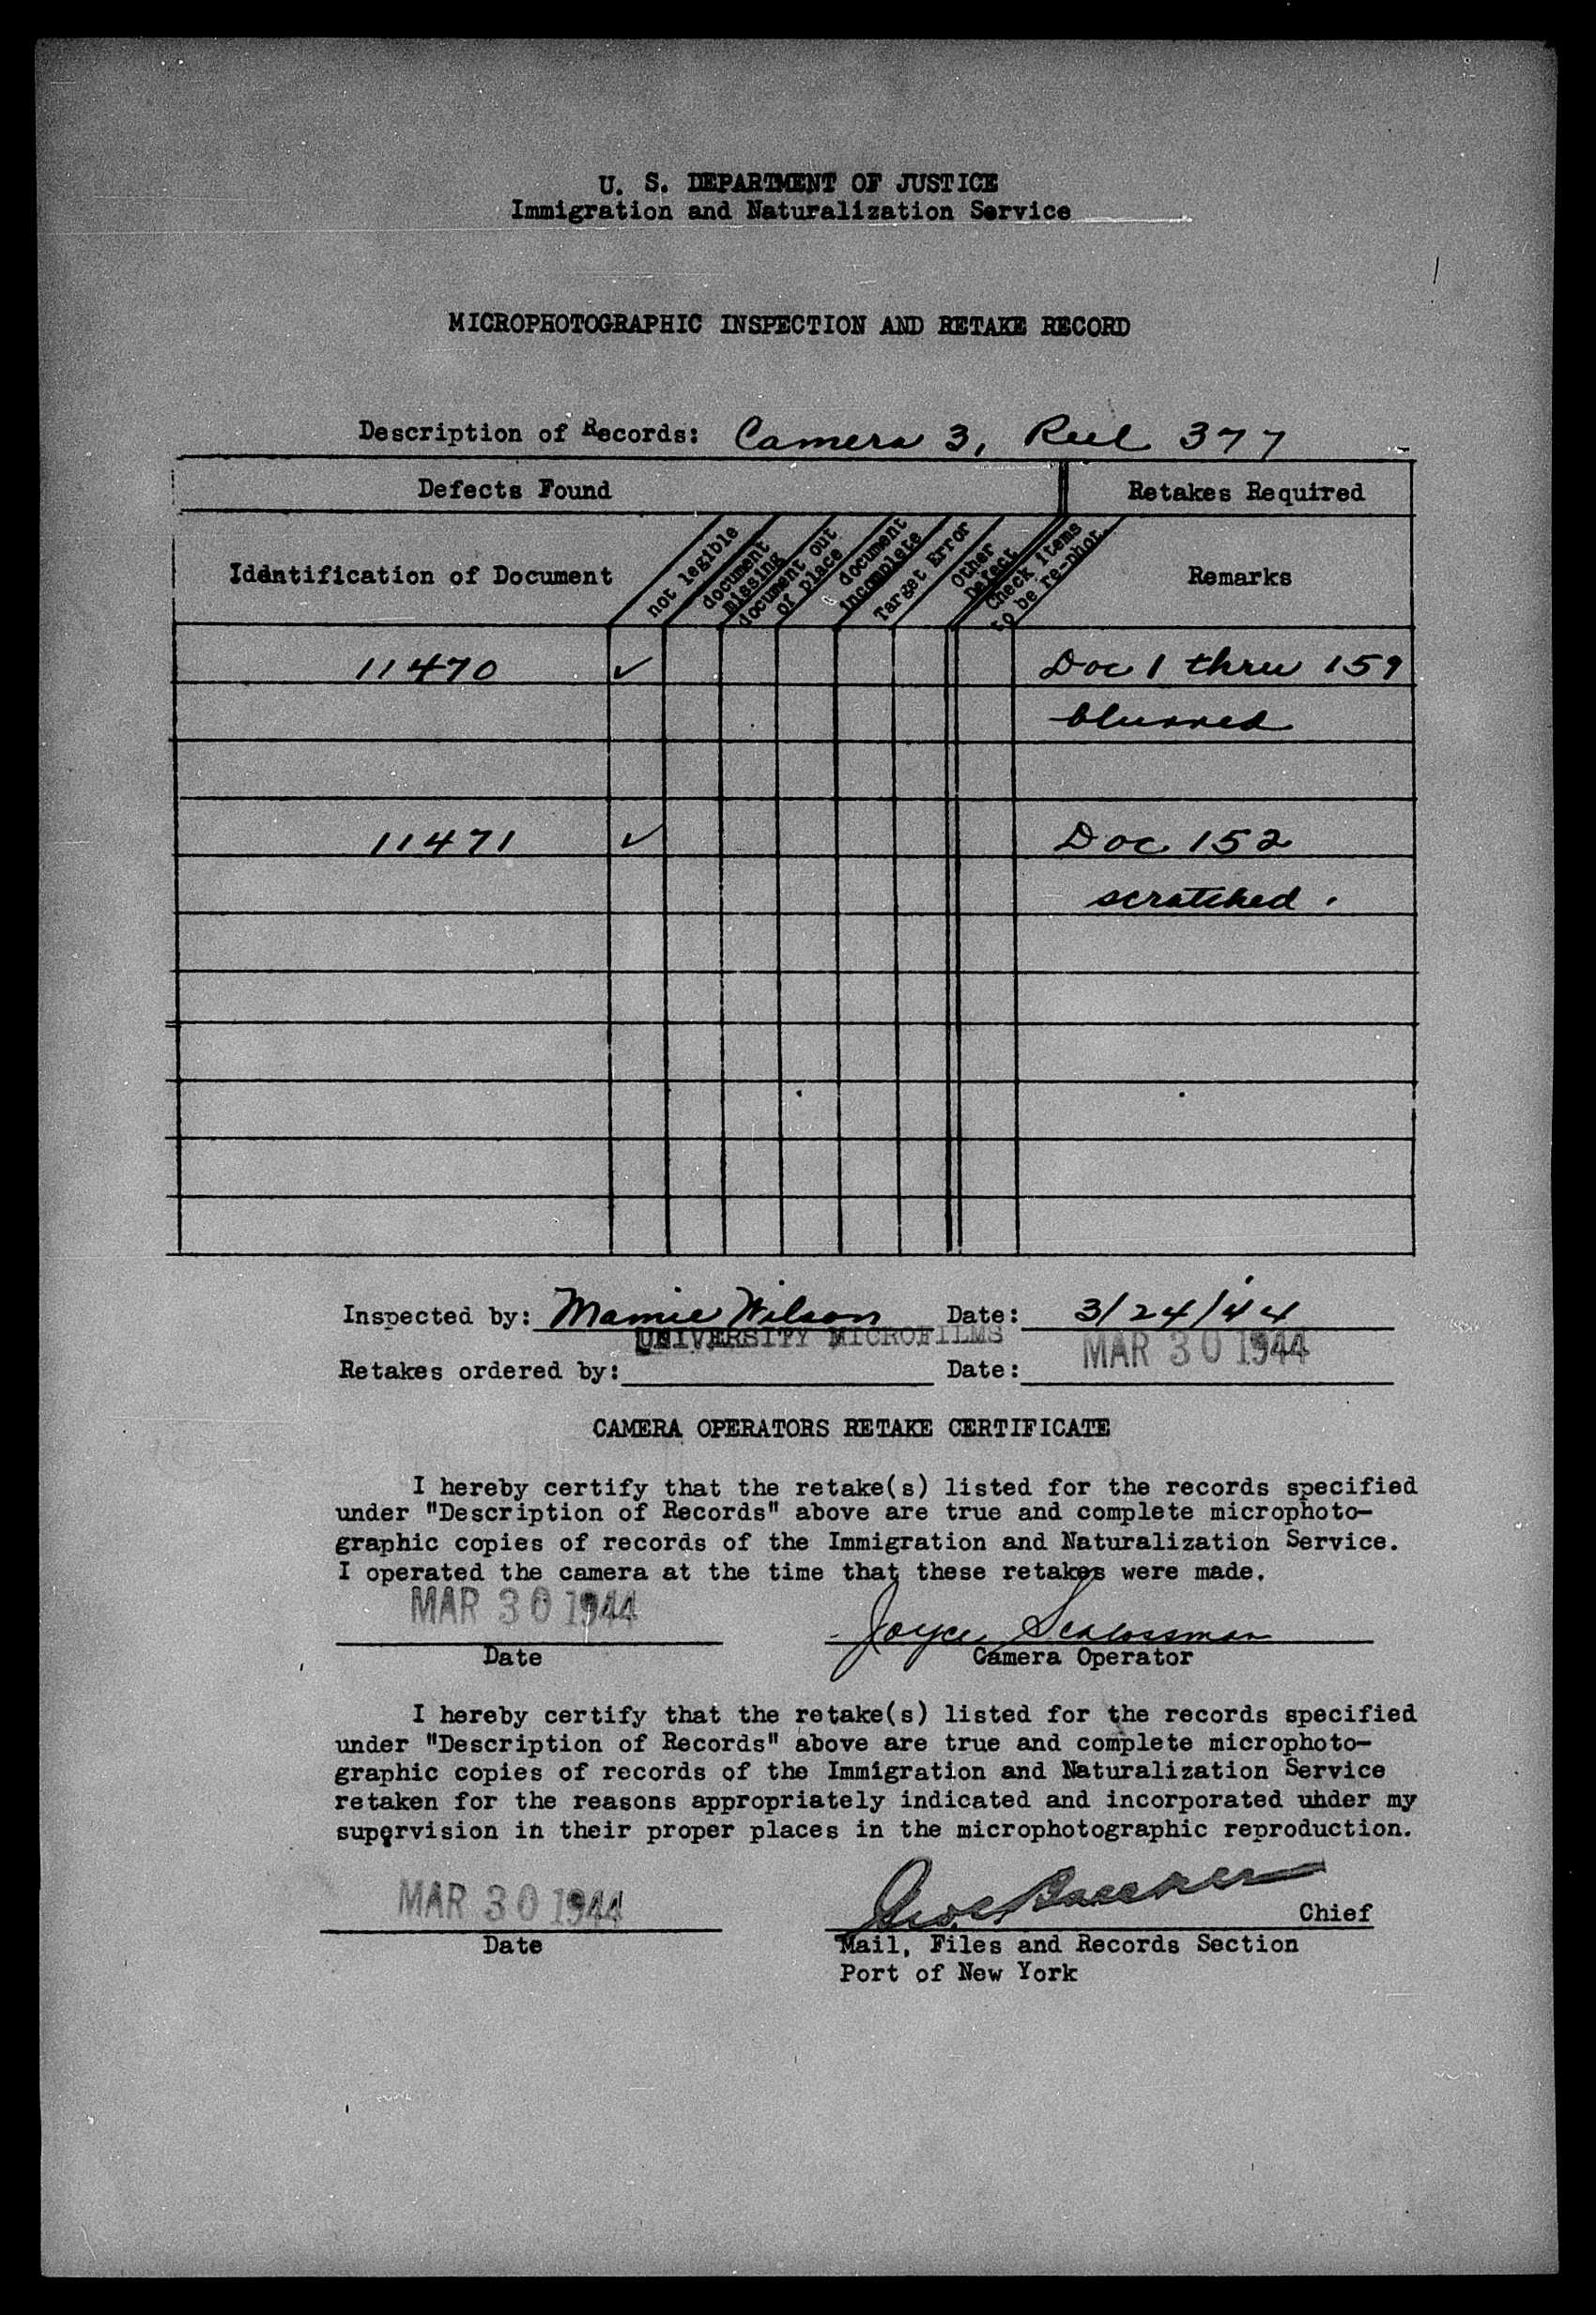 U. S. DEPARTMENT OF JUSTICE
Immigration and Naturalization Service
MICROPHOTOGRAPHIC INSPECTION AND RETAKE RECORD
Description of Records: Camera 3, Reel 377
Defects Found Retakes Required
Identification of Document
not legible
document missing
document out of place
document incomplete
Target Error
Other Defect
Check items to be re-phot.
Remarks
11470 ✓ Doc 1 thru 159
blurred
11471 ✓ Doc 152
scratched.
Inspected by: Mamie Wilson Date: 3/24/44
UNIVERSITY MICROFILMS MAR 30 1944
Retakes ordered by: Date:
CAMERA OPERATORS RETAKE CERTIFICATE
I hereby certify that the retake(s) listed for the records specified
under "Description of Records" above are true and complete microphoto-
graphic copies of records of the Immigration and Naturalization Service.
I operated the camera at the time that these retakes were made.
MAR 30 1944 Joyce Schlossman
Date Camera Operator
I hereby certify that the retake(s) listed for the records specified
under "Description of Records" above are true and complete microphoto-
graphic copies of records of the Immigration and Naturalization Service
retaken for the reasons appropriately indicated and incorporated under my
supervision in their proper places in the microphotographic reproduction.
MAR 30 1944 Chief
Date Mail, Files and Records Section
Port of New York